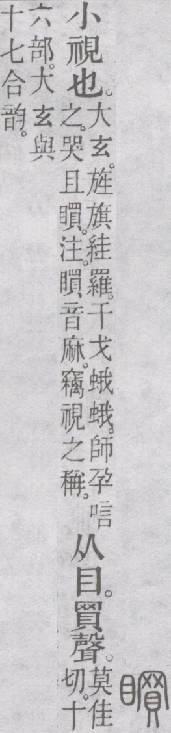 䁲
小視也。大玄。旌旗絓羅。干戈蛾蛾。師孕唁
之。哭且䁲。注。䁲、音麻。竊視之稱。从目。買聲。莫佳
切。十
六部。大玄與
十七合韵。